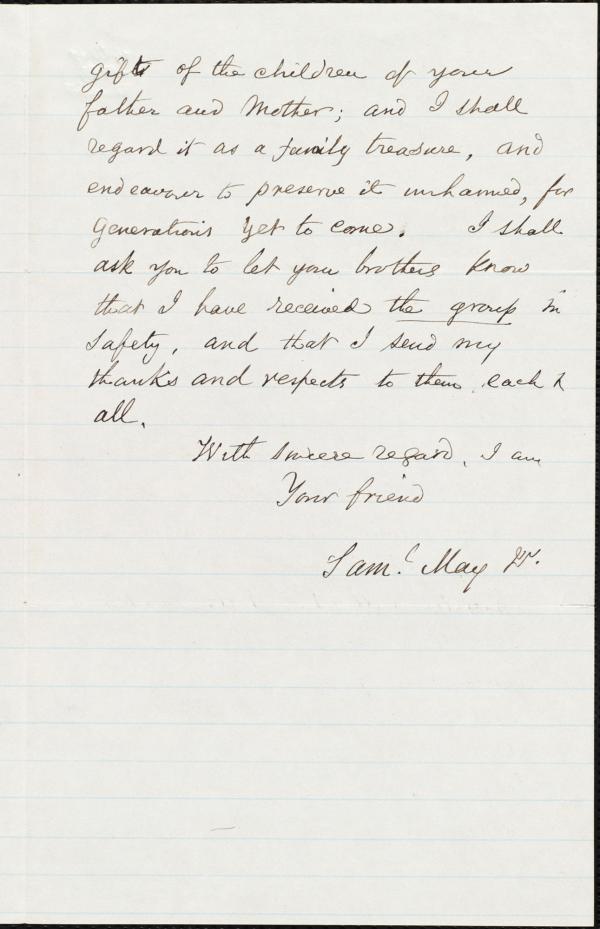 gifts of the children of your
father and Mother; and I shall
regard it as a family treasure, and
endeavour to preserve it unharmed, for
generations yet to come. I shall
ask you to let your brothers know
that I have received the group in
safety, and that I send my
thanks and respects to them, each &
all.
With sincere regard, I am
Your friend
Saml. May Jr.